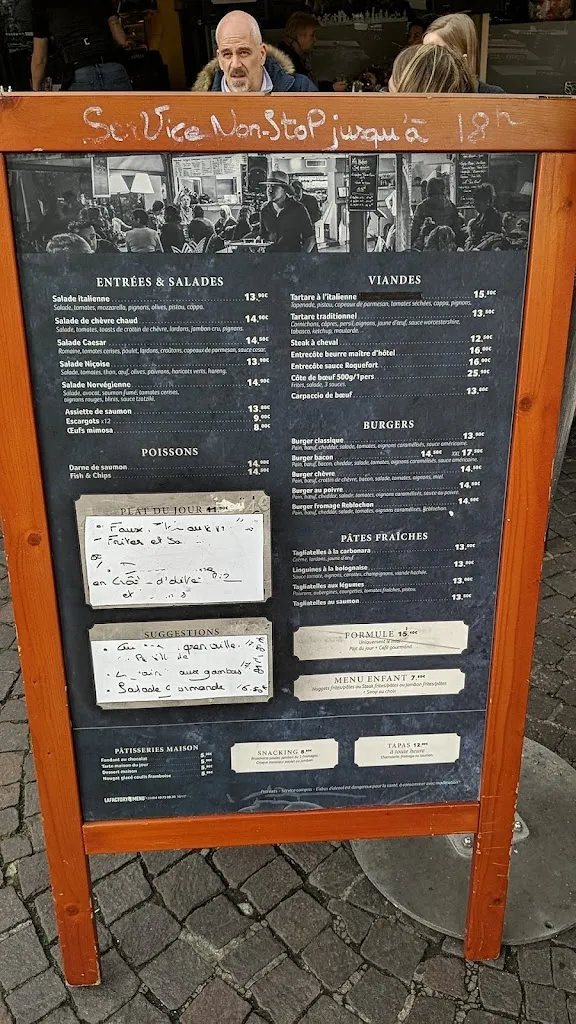 Service Non-Stop jusqu'à 18h
ENTRÉES & SALADES
Salade italienne 13.90€
Salade, tomates, mozzarella, pignons, olives, pistou, câpres.
Salade de chèvre chaud 14.90€
Salade, tomates, toasts de crotin de chèvre, lardons, jambon cru, pignons.
Salade Caesar 14.80€
Romaine, tomates cerises, poulet, lardons, croûtons, capeaux de parmesan, sauce cesar.
Salade Niçoise 13.90€
Salade, tomates, thon, œuf, olives, poivrons, haricots verts, hareng.
Salade Norvégienne 14.90€
Salade, avocat, saumon fumé, tomates cerises,
oignons rouges, blinis, sauce tzatziki.
Assiette de saumon 13.80€
Escargots x12 9.00€
Œufs mimosa 8.00€
POISSONS
Darne de saumon 14.90€
Fish & Chips 14.50€
PLAT DU JOUR
Frites et
en Croû d'olive
et
SUGGESTIONS
grenouille
aux gambas
Salade Gourmande
VIANDES
Tartare à l'italienne 15.80€
Tapenade, pistou, capeaux de parmesan, tomates séchées, câpres, pignons.
Tartare traditionnel 13.80€
Cornichons, câpres, persil, oignons, jaune d'œuf, sauce worcestershire,
tabasco, ketchup, moutarde.
Steak à cheval 12.50€
Entrecôte beurre maître d'hôtel 16.00€
Entrecôte sauce Roquefort 16.00€
Côte de bœuf 500g/1pers 25.90€
Frites, salade, 3 sauces.
Carpaccio de bœuf 13.80€
BURGERS
Burger classique 13.90€
Pain, bœuf, cheddar, salade, tomates, oignons caramélisés, sauce américaine.
Burger bacon 14.90€ XXL 17.50€
Pain, bœuf, bacon, cheddar, salade, tomates, oignons caramélisés, sauce américaine.
Burger chèvre 14.90€
Pain, crotin de chèvre, bacon, salade, tomates, oignons, miel.
Burger au poivre 14.90€
Pain, bœuf, cheddar, salade, tomates, oignons caramélisés, sauce au poivre.
Burger fromage Reblochon 14.90€
Pain, bœuf, cheddar, salade, tomates, oignons caramélisés, Reblochon.
PÂTES FRAÎCHES
Tagliatelles à la carbonara 13.50€
Crème, lardons, jaune d'œuf.
Linguines à la bolognaise 13.50€
Sauce tomate, oignons, carottes, champignons, viande hachée.
Tagliatelles aux légumes 13.50€
Poivrons, aubergines, courgettes, tomates fraîches, pistou.
Tagliatelles au saumon 13.80€
FORMULE 15.50€
Uniquement le midi
Plat du jour + Café gourmand
MENU ENFANT 7.80€
Nuggets frites/pâtes ou Steak frites/pâtes ou Jambon frites/pâtes
+ Sirop au choix
PÂTISSERIES MAISON
Fondant au chocolat 5.90€
Tarte maison du jour 5.90€
Dessert maison 5.90€
Nougat glacé coulis framboise 5.90€
SNACKING 8.90€
TAPAS 12.90€
à toute heure
LAFACTORYDUMENU